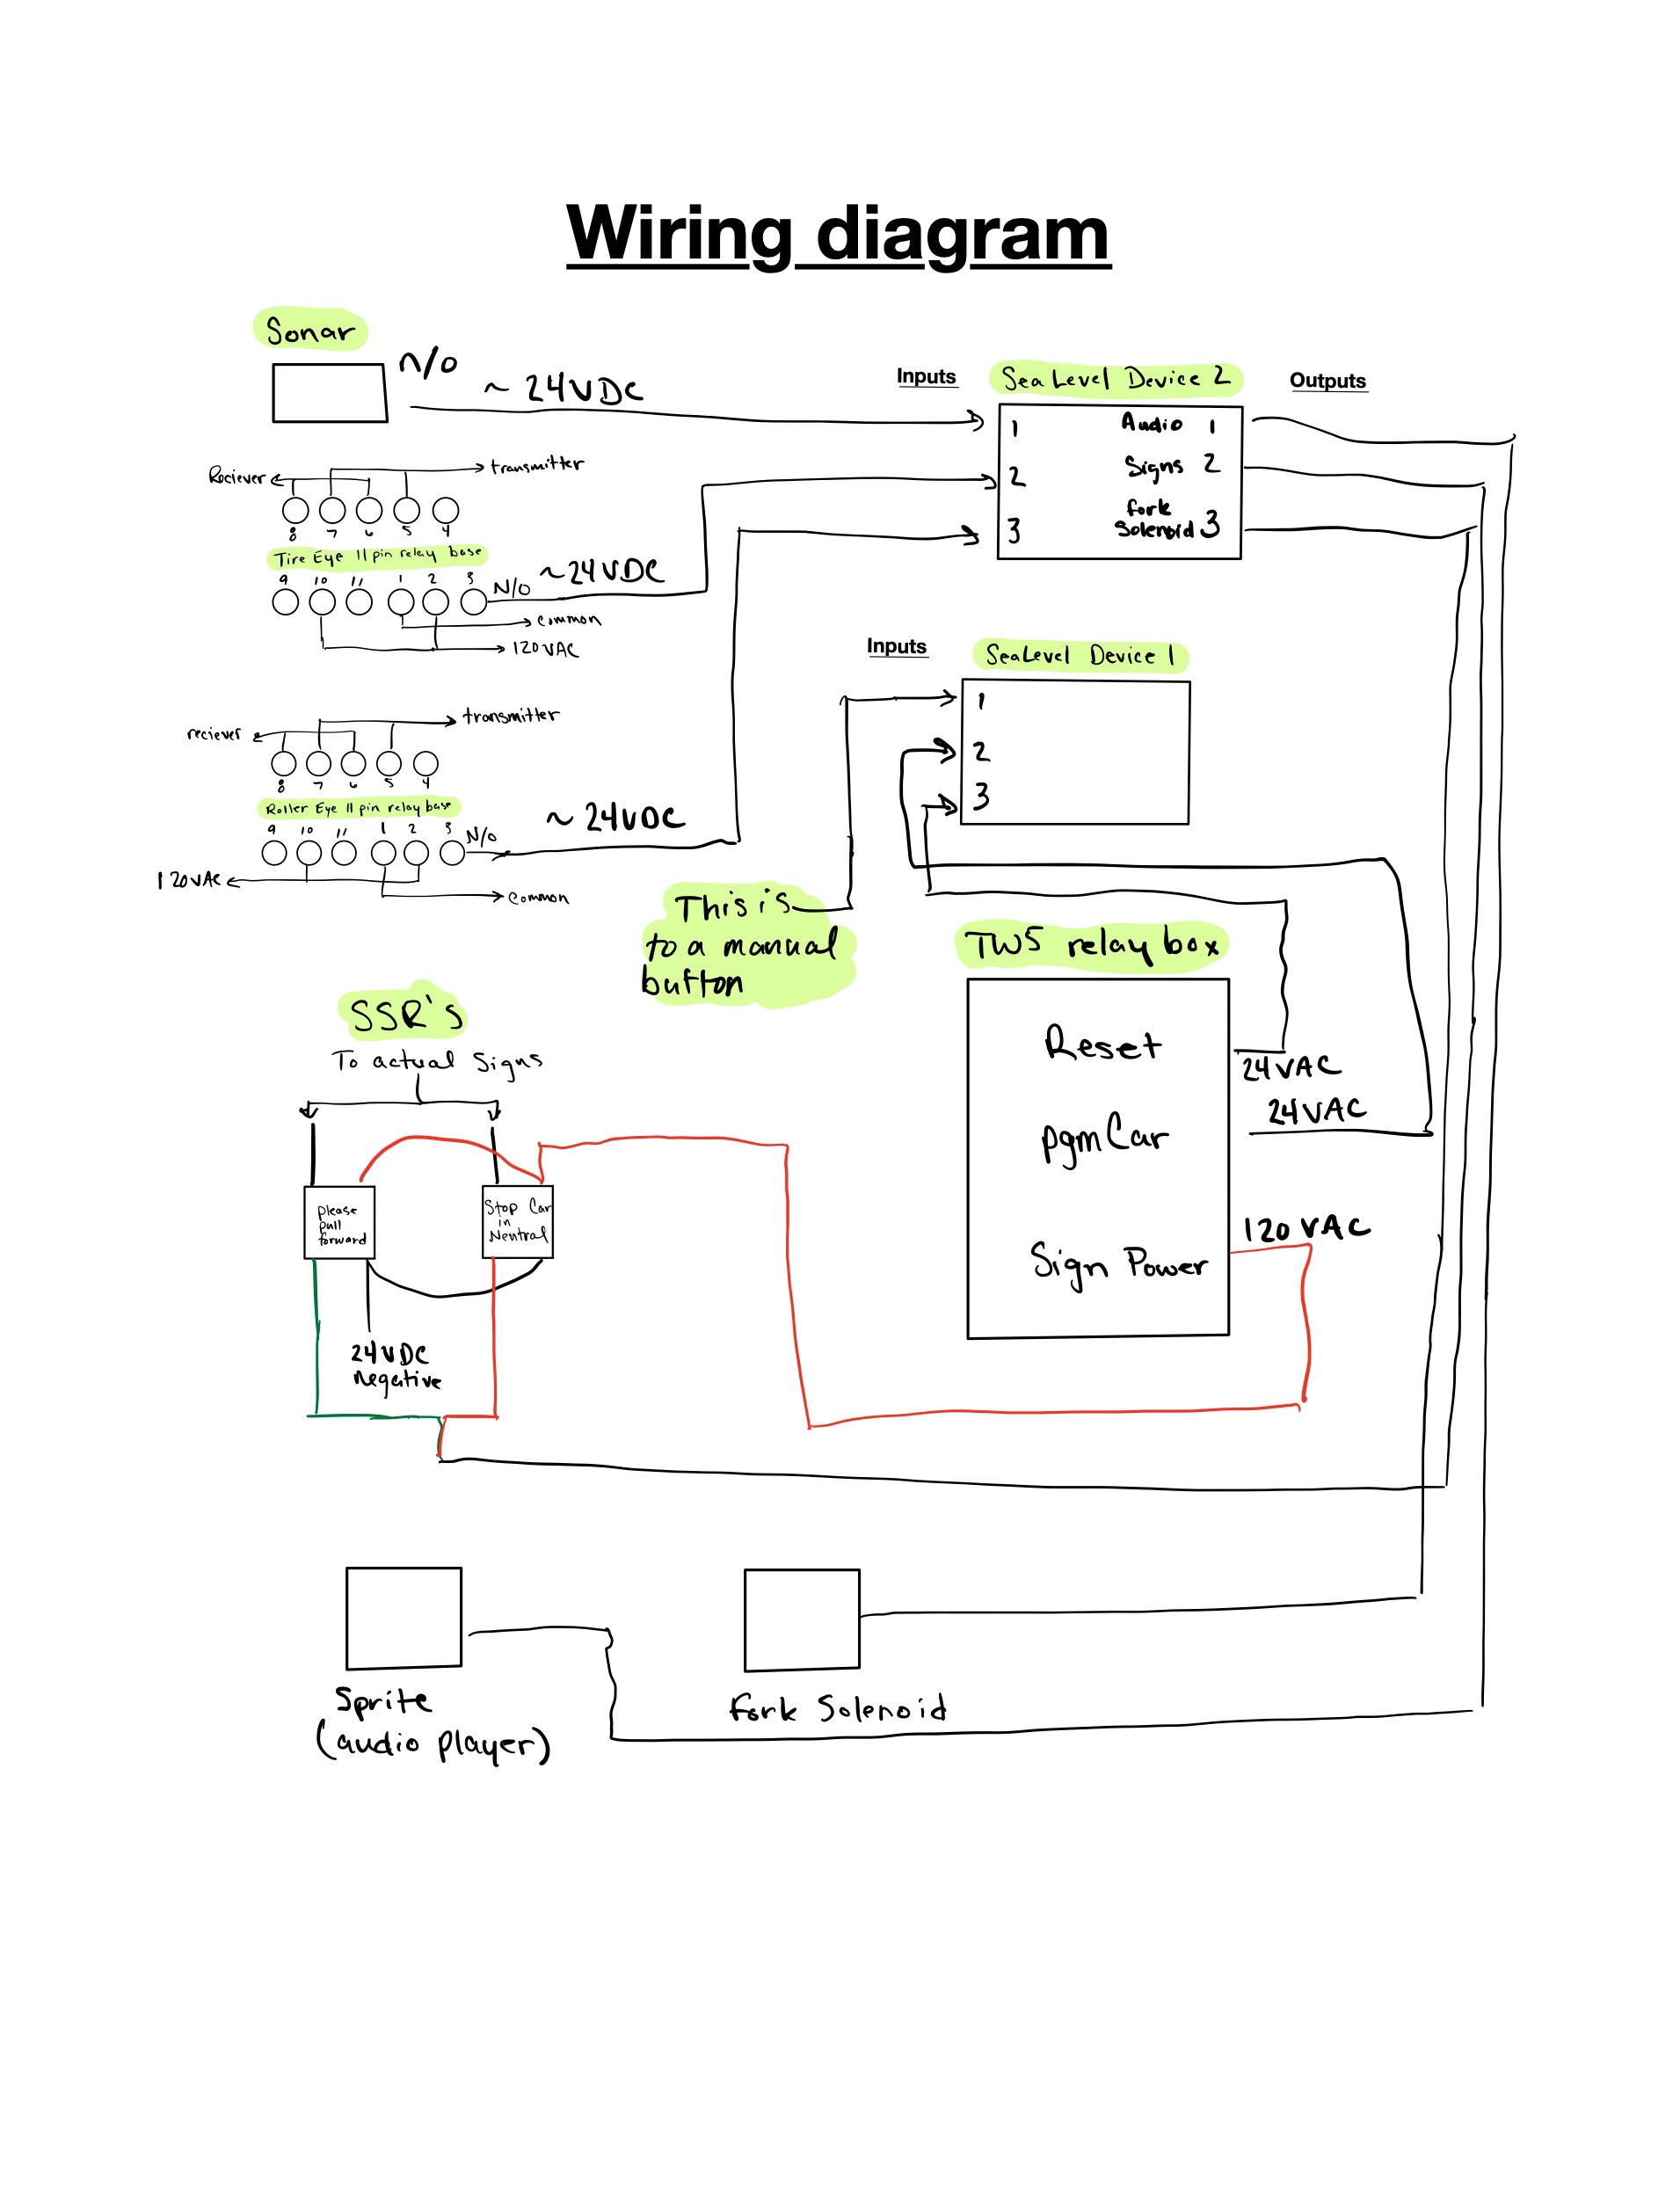 Wiring diagram
Sonar
N/O
~ 24VDC
Inputs
SeaLevel Device 2
Outputs
1
Audio 1
2
Signs 2
3
fork
Solenoid 3
Reciever
transmitter
8 7 6 5 4
Tire Eye 11 pin relay base
9 10 11 1 2 3
N/O
~24VDC
common
120VAC
Inputs
SeaLevel Device 1
1
2
3
reciever
transmitter
8 7 6 5 4
Roller Eye 11 pin relay base
9 10 11 1 2 3
N/O
~ 24VDC
120VAC
Common
This is
to a manual
button
TW5 relay box
Reset
24VAC
24VAC
pgmCar
120 VAC
Sign Power
SSR's
To actual Signs
please
pull
forward
Stop Car
in
Neutral
24VDC
negative
Sprite
(audio player)
fork Solenoid